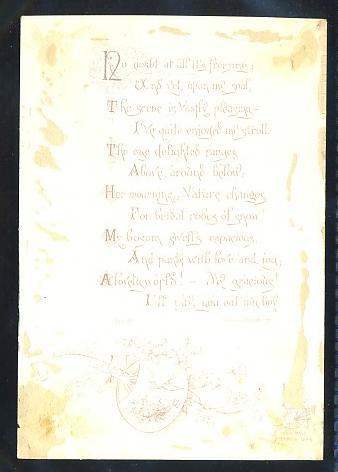 No doubt at all it's freezing;
And yet, upon my soul,
The scene is vastly pleasing—
I've quite enjoyed my stroll.
The eye delighted ranges
Above, around below;
Her mourning, Nature changes
For bridal robes of snow!
My bosom swells capacious,
And pants with love and joy;
A lovely world! — My gracious!
I'll my boy